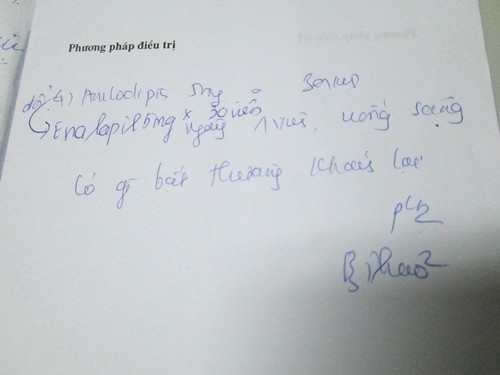 Phương pháp điều trị
đổi 4) Amlodipin 5mg 30 viên
Enalapril 5mg x 30 viên
ngày 1 viên, uống sáng
Có gì bất thường khám lại